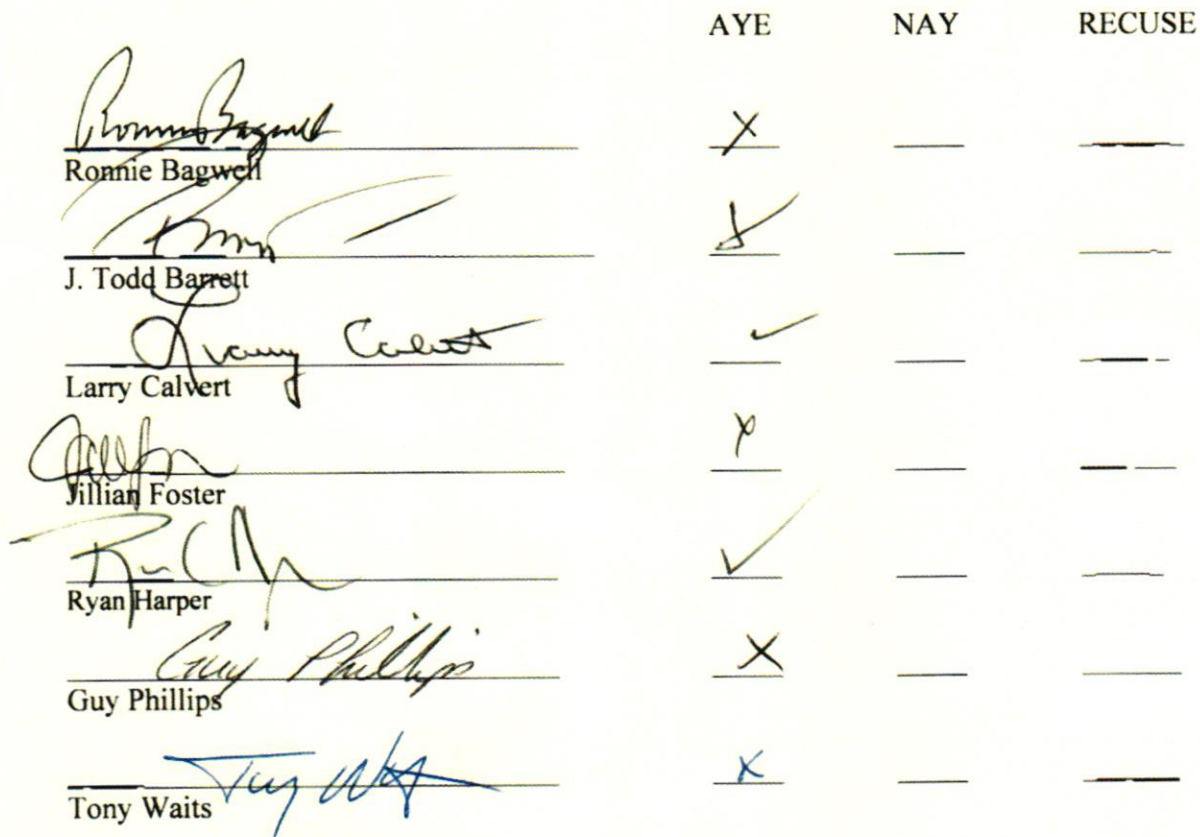 AYE NAY RECUSE
Ronnie Bagwell X
Ronnie Bagwell
X
J. Todd Barrett
Larry Calvert ✓
Larry Calvert
X
Jillian Foster
✓
Ryan Harper
Guy Phillips X
Guy Phillips
Tony Waits X
Tony Waits